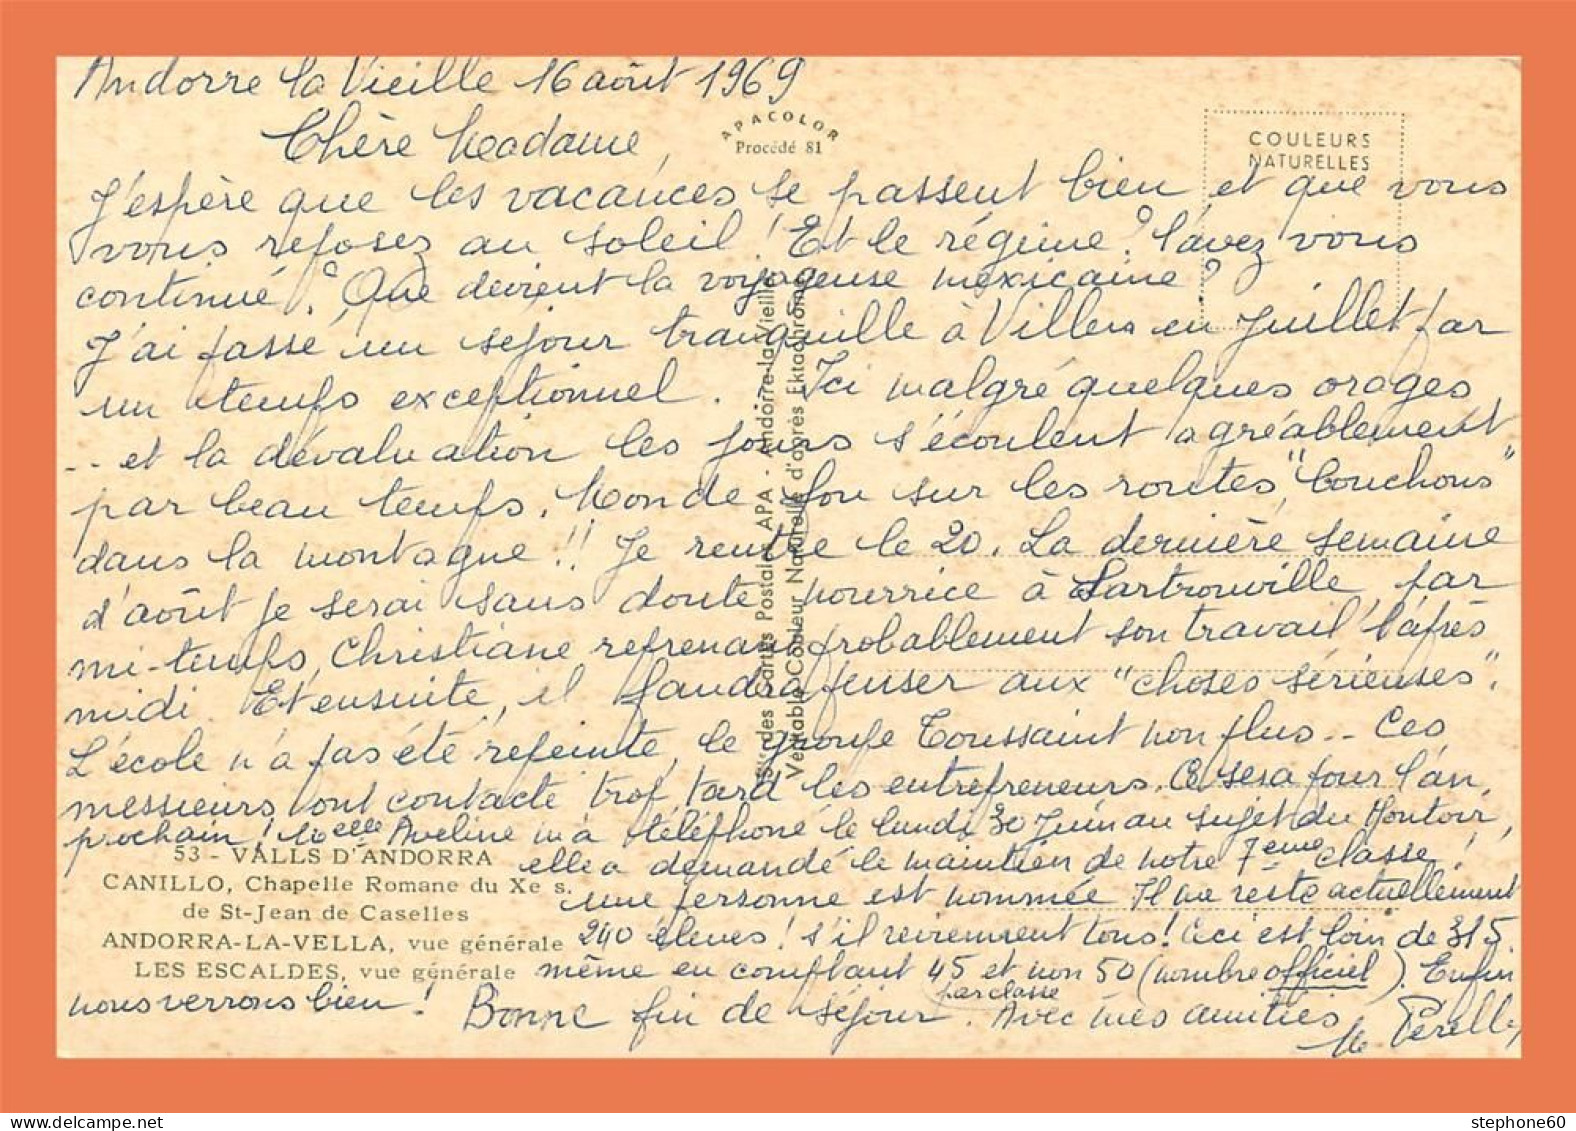 Andorre la Vieille 16 août 1969
Chère Madame,
APACOLOR
Procédé 81
COULEURS
NATURELLES
J'espère que les vacances se passent bien et que vous
vous reposez au soleil ! Et le régime ? l'avez vous
continué ? Que devient la voyageuse mexicaine ?
J'ai passé un séjour tranquille à Villers en Juillet par
un temps exceptionnel. Ici malgré quelques orages
.. et la dévaluation les jours s'écoulent agréablement
par beau temps. Monde fou sur les routes, "bouchons"
dans la montagne !! Je rentre le 20. La dernière semaine
d'août je serai sans doute nourrice à Sartrouville par
mi-temps, Christiane reprenant probablement son travail l'après
midi. Et ensuite, il faudra penser aux "choses sérieuses".
L'école n'a pas été repeinte, le groupe Toussaint non plus.. Ces
messieurs ont contacté trop tard les entrepreneurs. Ce sera pour l'an
prochain ! Melle Aveline m'a téléphoné le lundi 30 Juin au sujet du Montoir,
elle a demandé le maintien de notre 7eme classe !
une personne est nommée Il me reste actuellement
240 élèves ! s'il reviennent tous ! Ceci est loin de 315.
même en comptant 45 et non 50 (nombre officiel). Enfin
par classe
nous verrons bien !
Bonne fin de séjour. Avec mes amitiés
53 - VALLS D'ANDORRA
CANILLO, Chapelle Romane du Xe s.
de St-Jean de Caselles
ANDORRA-LA-VELLA, vue générale
LES ESCALDES, vue générale
des Cartes Postales APA - Andorre-la-Vieille
Véritable Couleur Naturelle d'après Ektachrome
stephone60